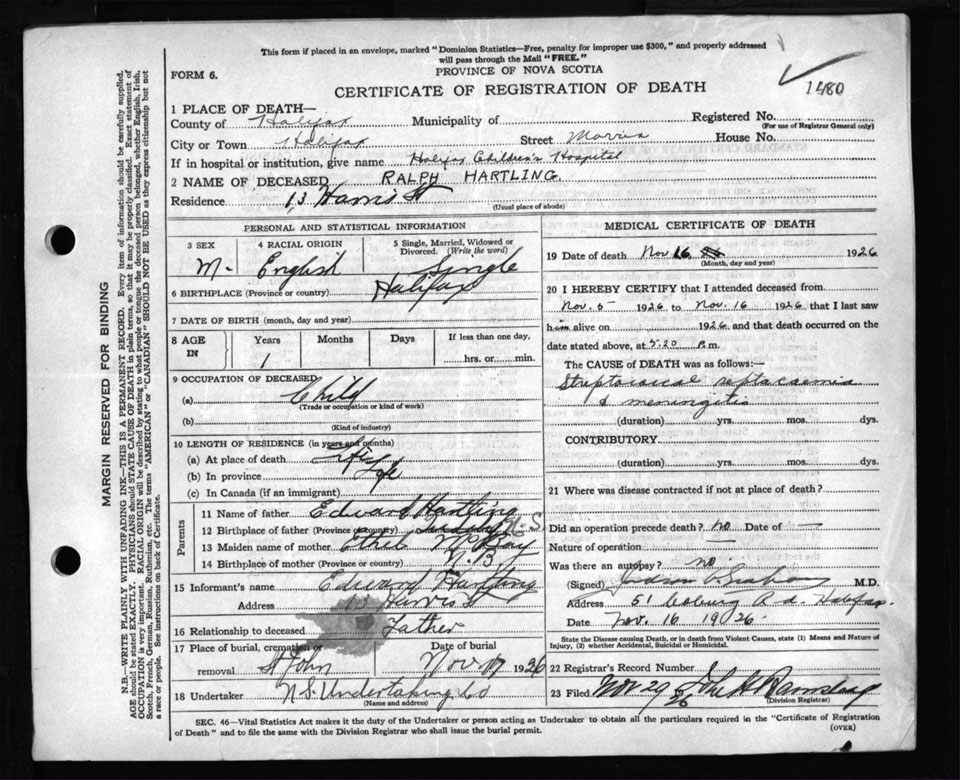 This form if placed in an envelope, marked "Dominion Statistics—Free, penalty for improper use $300," and properly addressed
will pass through the Mail "FREE."
PROVINCE OF NOVA SCOTIA
FORM 6.
CERTIFICATE OF REGISTRATION OF DEATH
1480
1 PLACE OF DEATH—
County of Halifax Municipality of Registered No.
(For use of Registrar General only)
City or Town Halifax Street Morris House No.
If in hospital or institution, give name Halifax Children's Hospital
2 NAME OF DECEASED RALPH HARTLING
Residence 13 Harris St
(Usual place of abode)
MARGIN RESERVED FOR BINDING
N.B.—WRITE PLAINLY WITH UNFADING INK—THIS IS A PERMANENT RECORD. Every item of information should be carefully supplied.
AGE should be stated EXACTLY. PHYSICIANS should STATE CAUSE OF DEATH in plain terms, so that it may be properly classified. Exact statement of
OCCUPATION is very important. RACIAL ORIGIN will be described by stating to what people or tongue the deceased person belonged, whether English, Irish,
Scotch, French, German, Russian, Ruthenian, etc. The terms "AMERICAN" or "CANADIAN" SHOULD NOT BE USED as they express citizenship but not
a race or people. See instructions on back of Certificate.
PERSONAL AND STATISTICAL INFORMATION
3 SEX 4 RACIAL ORIGIN 5 Single, Married, Widowed or
Divorced. (Write the word)
M- English Single
6 BIRTHPLACE (Province or country) Halifax
7 DATE OF BIRTH (month, day and year)
8 AGE IN Years Months Days If less than one day,
1 hrs. or min.
9 OCCUPATION OF DECEASED
(a) Child
(Trade or occupation or kind of work)
(b)
(Kind of industry)
10 LENGTH OF RESIDENCE (in years and months)
(a) At place of death Life
(b) In province Life
(c) In Canada (if an immigrant)
Parents
11 Name of father Edward Hartling
12 Birthplace of father (Province or country) N.S.
13 Maiden name of mother Ethel
14 Birthplace of mother (Province or country) N.B.
15 Informant's name Edward Hartling
Address 13 Harris St
16 Relationship to deceased Father
17 Place of burial, cremation or removal St John Date of burial Nov 17 1926
18 Undertaker N S Undertaking Co
(Name and address)
MEDICAL CERTIFICATE OF DEATH
19 Date of death Nov 16, 1926
(Month, day and year)
20 I HEREBY CERTIFY that I attended deceased from
Nov. 5 1926 to Nov. 16 1926, that I last saw
him alive on 1926 and that death occurred on the
date stated above, at 5.20 P.m.
The CAUSE of DEATH was as follows:—
Streptococcal septacaemia
& meningitis
(duration) yrs. mos. dys.
CONTRIBUTORY
(duration) yrs. mos. dys.
21 Where was disease contracted if not at place of death?
Did an operation precede death? no Date of —
Nature of operation —
Was there an autopsy? no.
(Signed) Judson Graham M.D.
Address 51 Coburg Rd. Halifax
Nov. 16 1926.
State the Disease causing Death, or in death from Violent Causes, state (1) Means and Nature of
Injury, (2) whether Accidental, Suicidal or Homicidal.
22 Registrar's Record Number
23 Filed Nov 29/26
(Division Registrar)
SEC. 46—Vital Statistics Act makes it the duty of the Undertaker or person acting as Undertaker to obtain all the particulars required in the "Certificate of Registration
of Death" and to file the same with the Division Registrar who shall issue the burial permit.
(OVER)